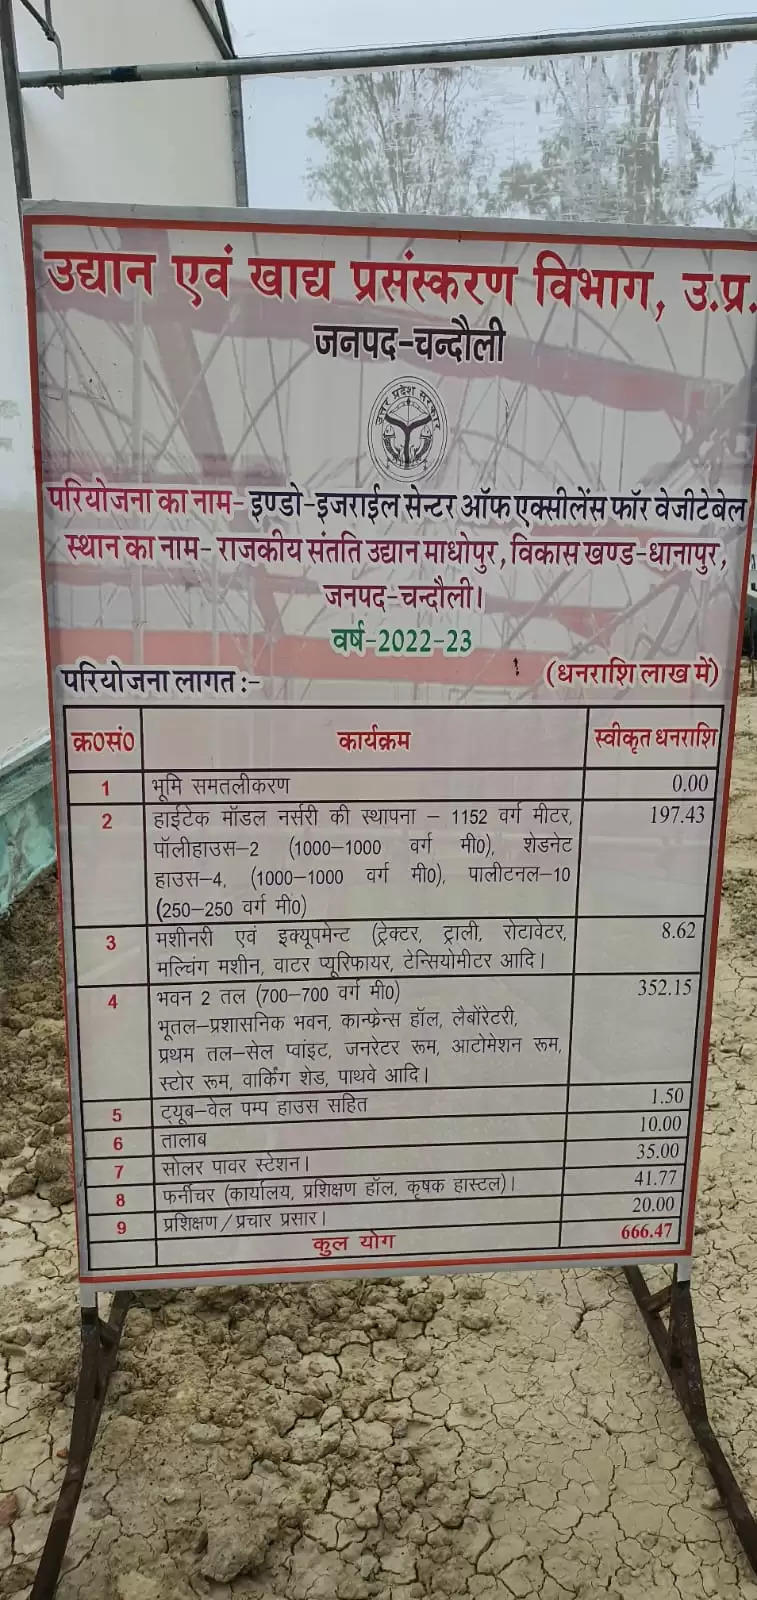 उद्यान एवं खाद्य प्रसंस्करण विभाग, उ.प्र.
जनपद-चन्दौली
उत्तर प्रदेश सरकार
परियोजना का नाम- इण्डो-इजराईल सेन्टर ऑफ एक्सीलेंस फॉर वेजीटेबेल
स्थान का नाम- राजकीय संतति उद्यान माधोपुर, विकास खण्ड-धानापुर,
जनपद-चन्दौली।
वर्ष-2022-23
परियोजना लागत :- (धनराशि लाख में)
क्र0सं0 कार्यक्रम स्वीकृत धनराशि
1 भूमि समतलीकरण 0.00
2 हाईटेक मॉडल नर्सरी की स्थापना – 1152 वर्ग मीटर, 197.43
पॉलीहाउस-2 (1000-1000 वर्ग मी0), शेडनेट
हाउस-4, (1000-1000 वर्ग मी0), पालीटनल-10
(250-250 वर्ग मी0)
3 मशीनरी एवं इक्यूपमेन्ट (ट्रेक्टर, ट्राली, रोटावेटर, 8.62
मल्चिंग मशीन, वाटर प्यूरिफायर, टेन्सियोमीटर आदि।
4 भवन 2 तल (700-700 वर्ग मी0) 352.15
भूतल-प्रशासनिक भवन, कान्फ्रेन्स हॉल, लैबोंरेटरी,
प्रथम तल-सेल प्वांइट, जनरेटर रूम, आटोमेशन रूम,
स्टोर रूम, वार्किंग शेड, पाथवे आदि।
5 ट्यूब-वेल पम्प हाउस सहित 1.50
6 तालाब 10.00
7 सोलर पावर स्टेशन। 35.00
8 फर्नीचर (कार्यालय, प्रशिक्षण हॉल, कृषक हास्टल)। 41.77
9 प्रशिक्षण/प्रचार प्रसार। 20.00
कुल योग 666.47